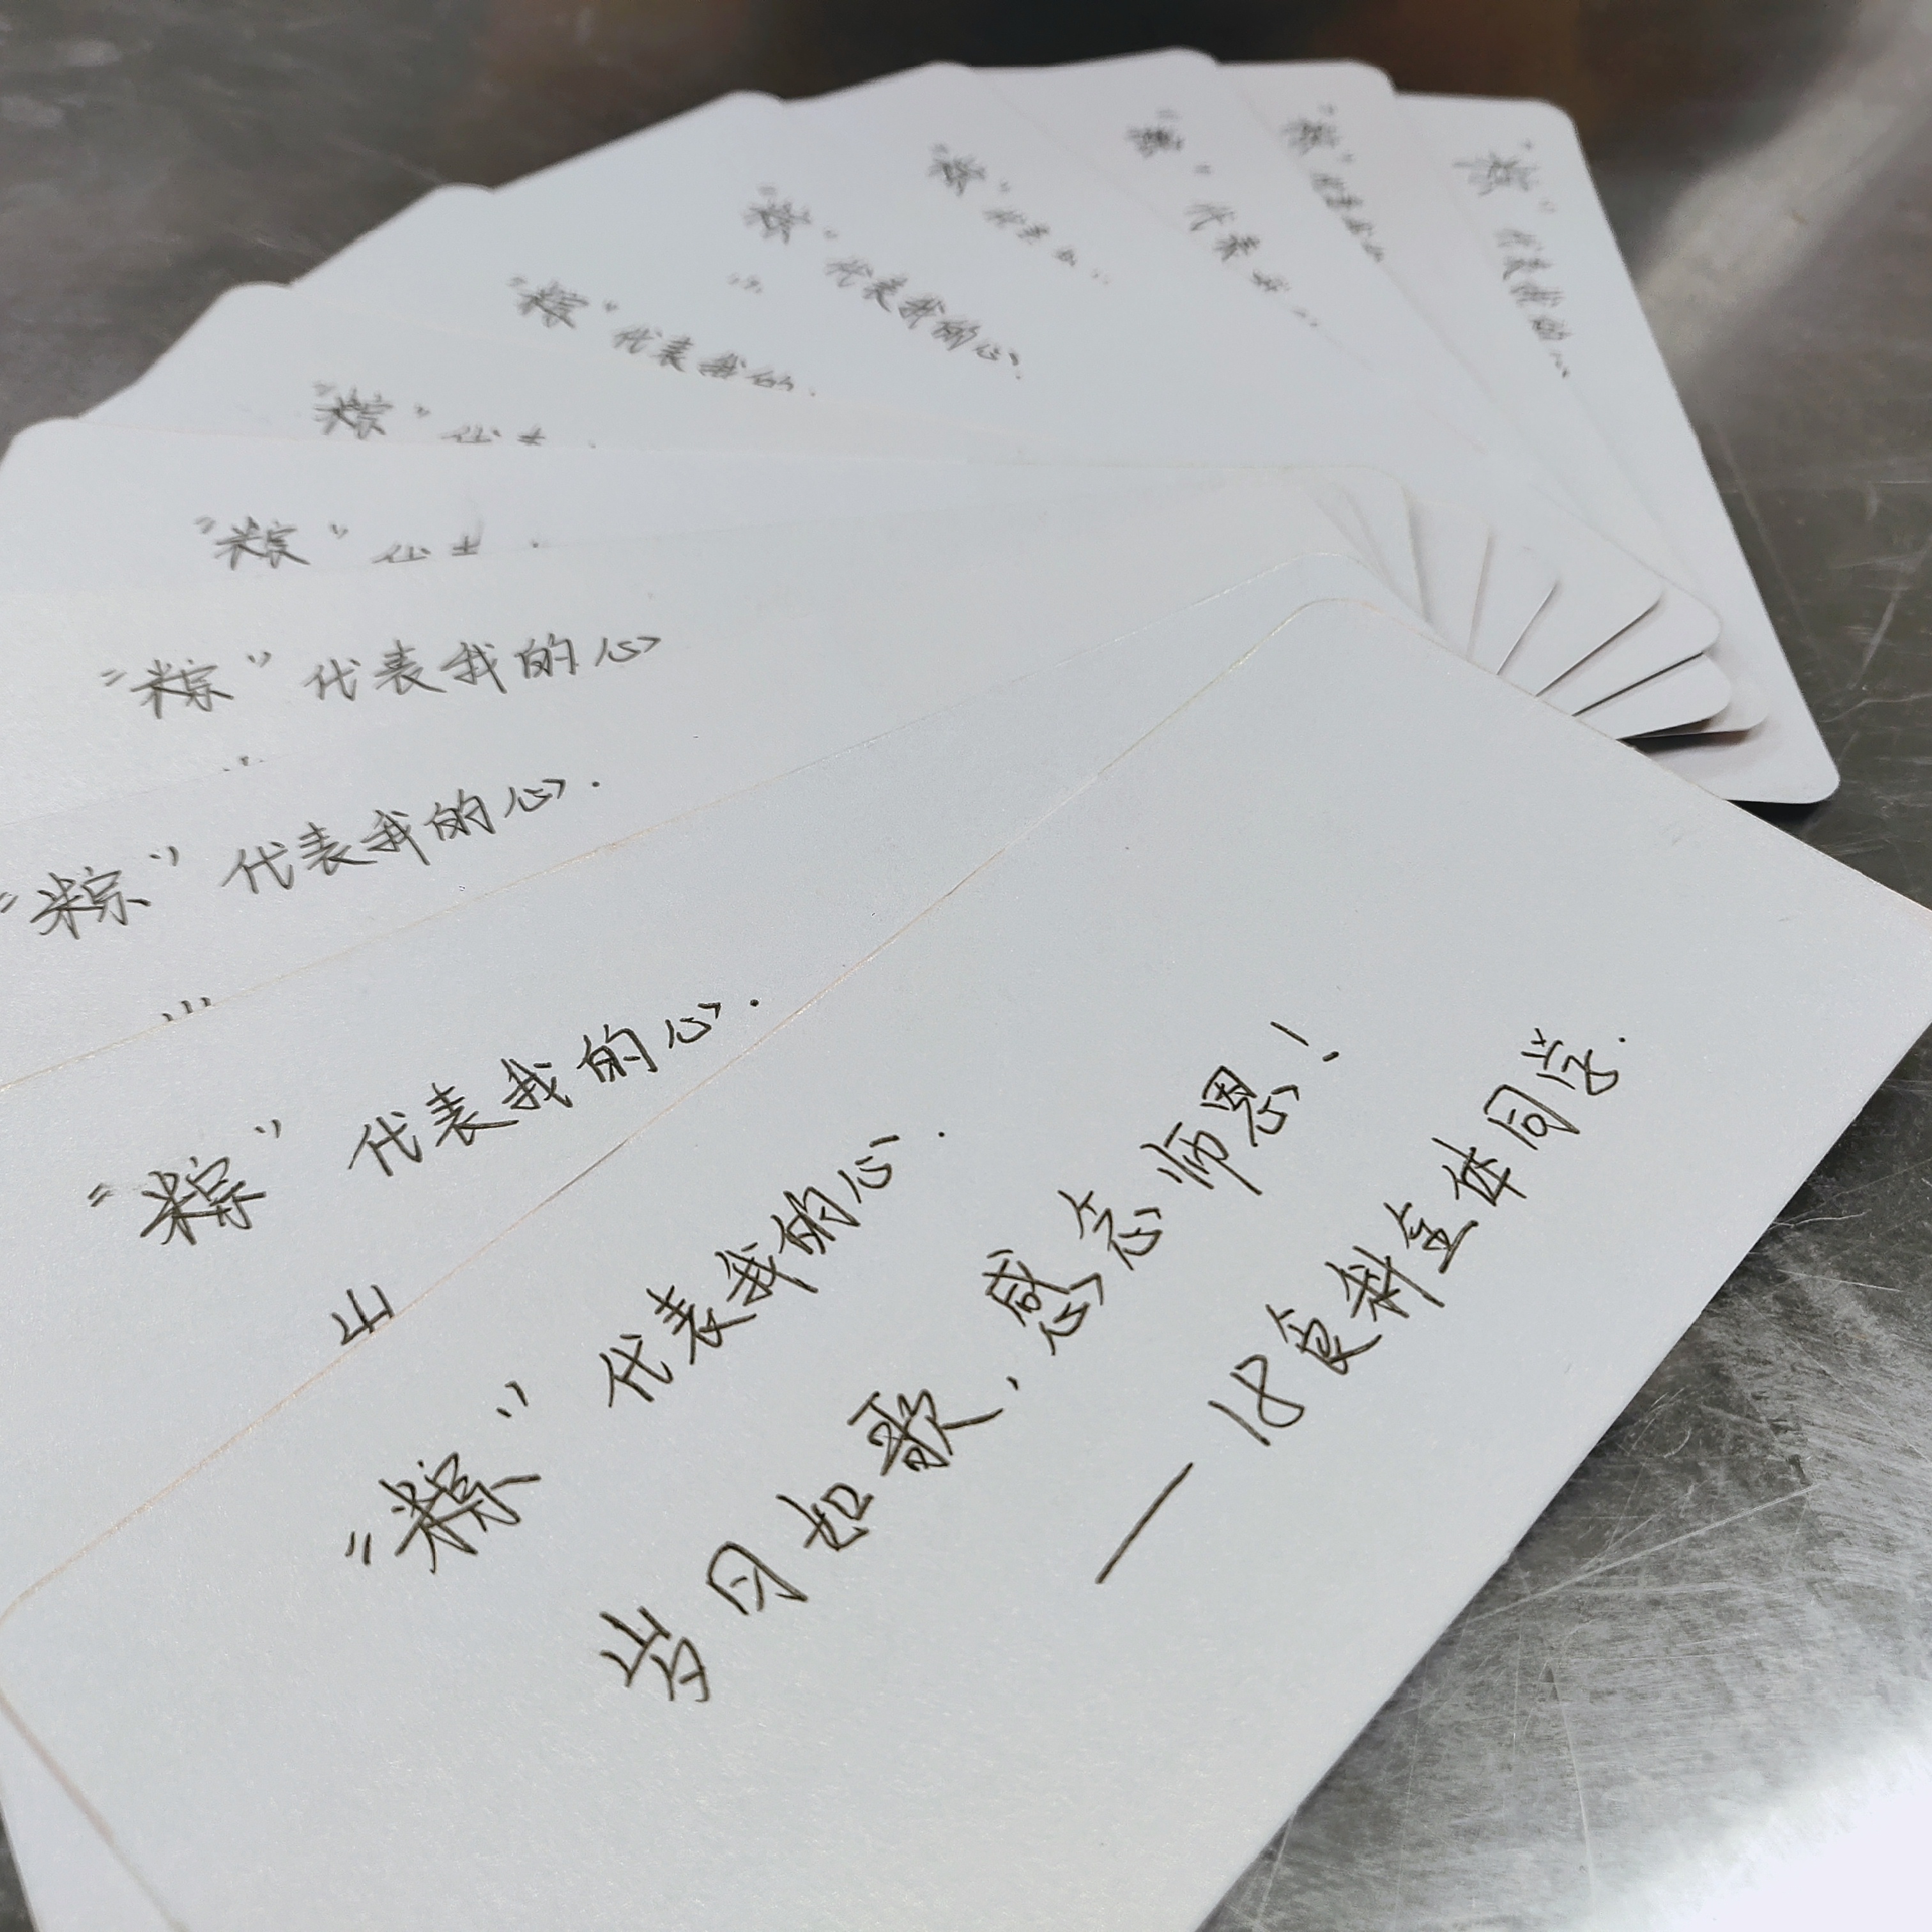 "粽"代表我的
"粽"代表我的
"粽"代表我
"粽"代表
"粽"代表我的心.
"粽"代表我的
"粽"代
"粽"代
"粽"代表我的心
"粽"代表我的心.
"粽"代表我的心.
"粽"代表我的心.
岁月如歌,感念师恩!
—18食科全体同学.